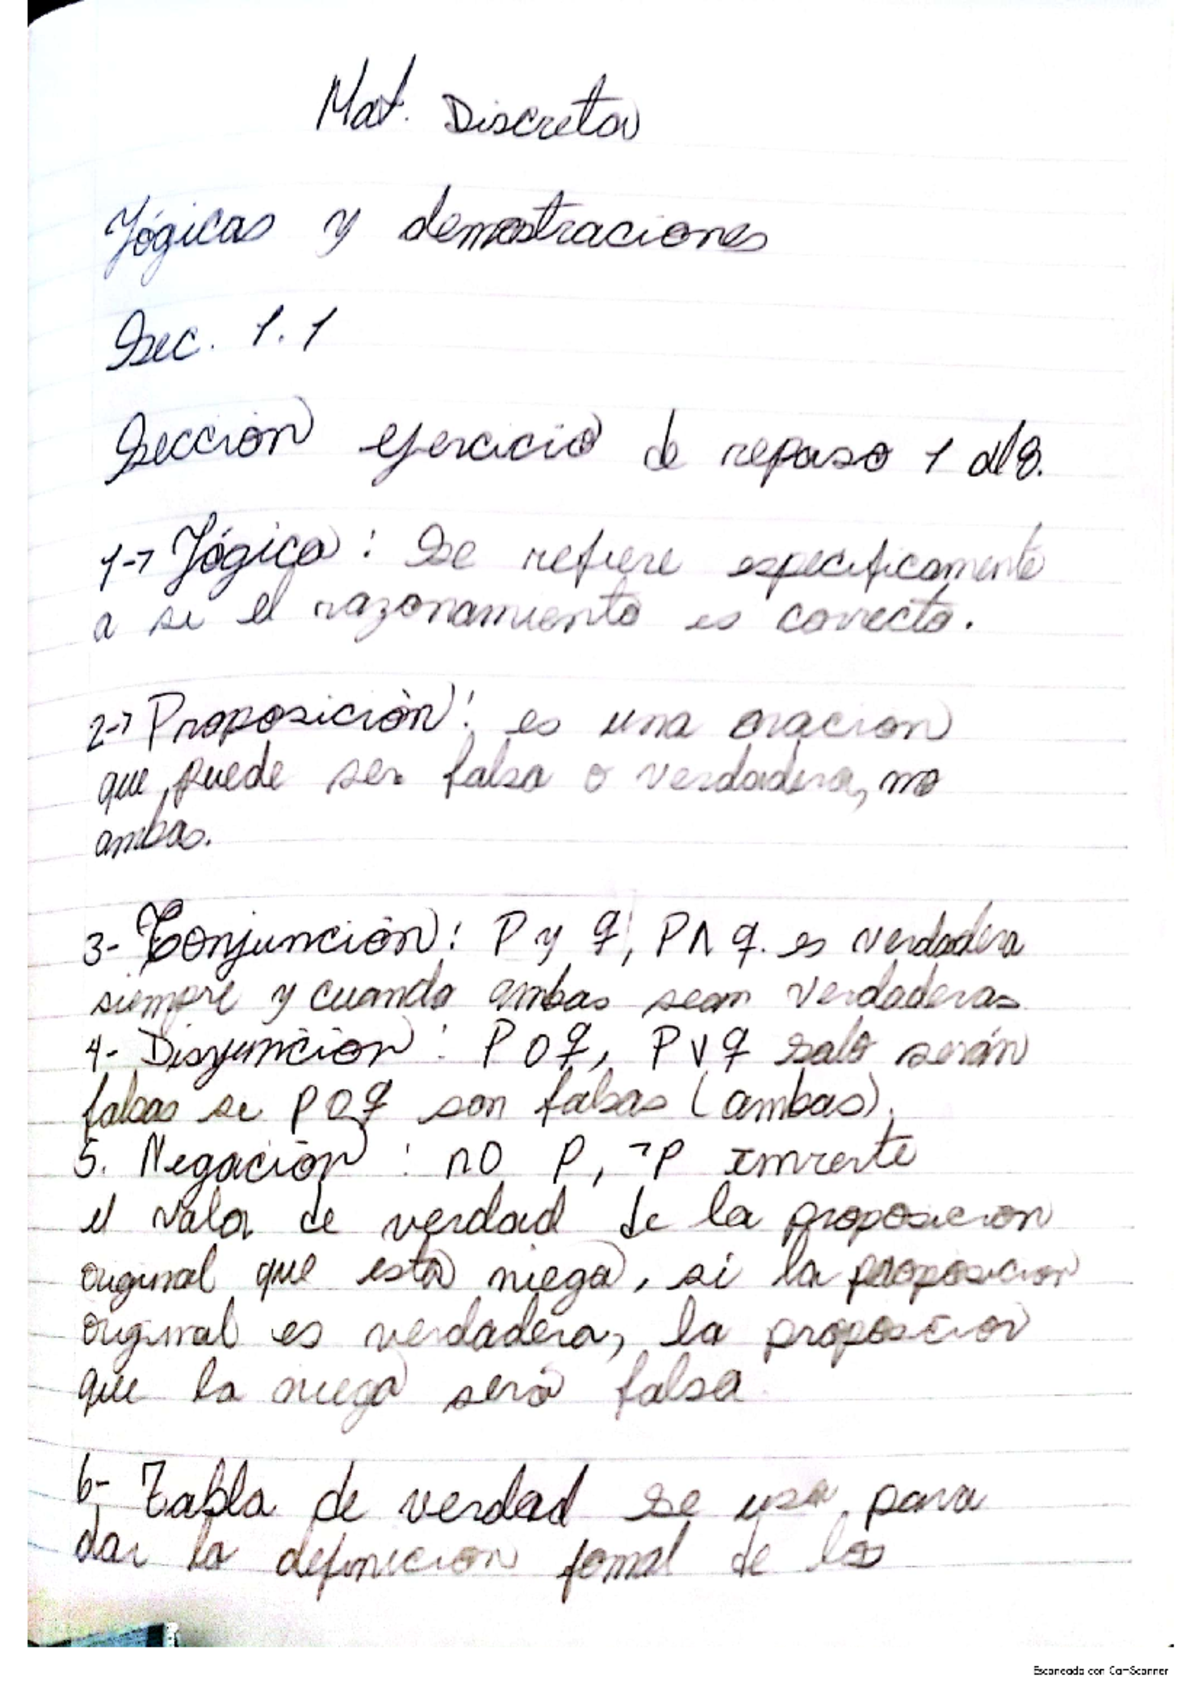 Mat. Discreta
Lógicas y demostraciones
Sec. 1.1
Sección ejercicio de repaso 1 al 8.
1-> Lógica: Se refiere especificamente
a si el razonamiento es correcto.
2-> Proposición: es una oracion
que puede ser falsa o verdadera, no
ambas.
3- Conjunción: P y q, P∧q. es verdadera
siempre y cuando ambas sean verdaderas
4- Disyuncion: P o q, P∨q solo serán
falsas si P o q son falsas (ambas).
5. Negación: no P, ¬P invierte
el valor de verdad de la proposicion
original que esta niega, si la proposicion
original es verdadera, la proposicion
que la niega será falsa.
6- Tabla de verdad se usa para
dar la definicion fomal de los
Escaneado con CamScanner